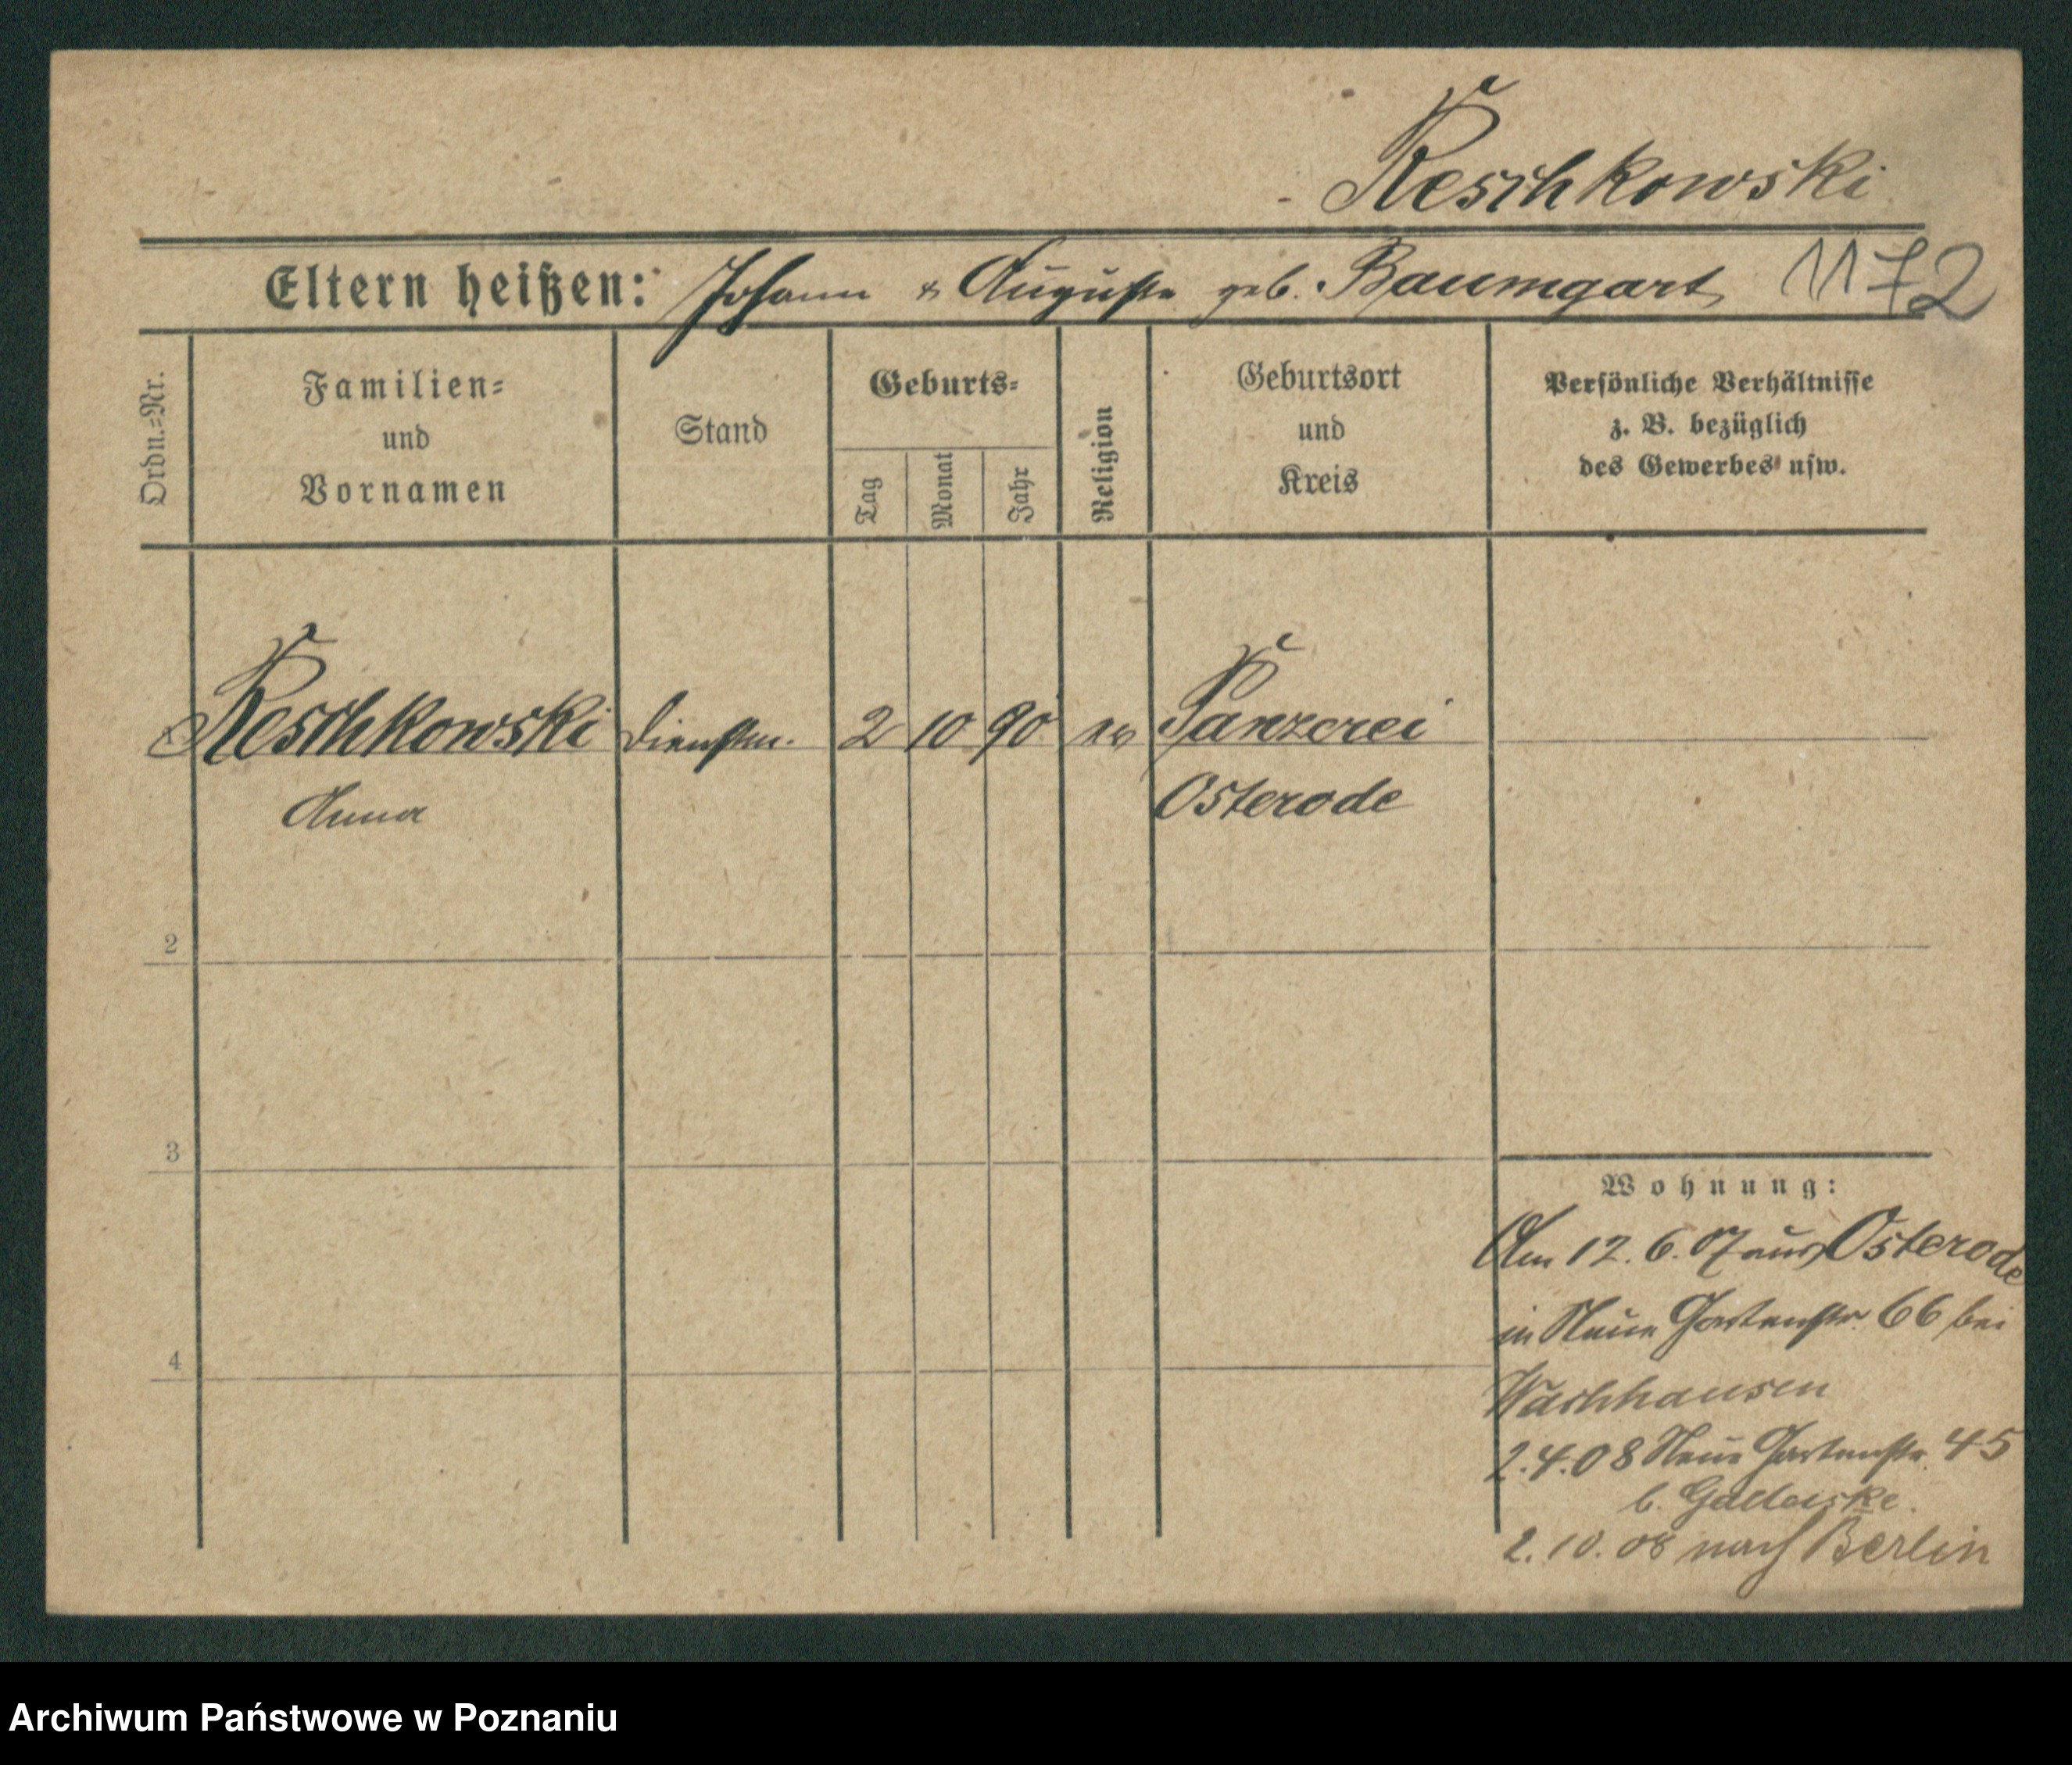 Reschkowski
Eltern heißen: Johann & Auguste geb. Baumgart 1172
Ordn.=Nr.
Familien=
und
Vornamen
Stand
Geburts=
Tag
Monat
Jahr
Religion
Geburtsort
und
Kreis
Persönliche Verhältnisse
z. B. bezüglich
des Gewerbes usw.
Reschkowski Dienstm. 2 10 90 ev Panzerei
Anna Osterode
2
3
4
Wohnung:
Am 12.6.07 aus Osterode
in Neue Gartenstr. 66 bei
Warhhausen
2.4.08 Neue Gartenstr. 45
b.
2.10.08 nach Berlin
Archiwum Państwowe w Poznaniu